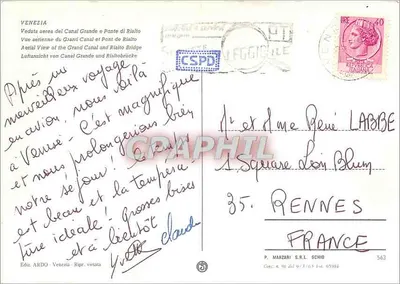 VENEZIA
Veduta aerea del Canal Grande e Ponte di Rialto
Vue aérienne du Grand Canal et Pont de Rialto
Aerial View of the Grand Canal and Rialto Bridge
Luftansicht von Canal Grande und Rialtobrücke
CSPD
40
Après un
merveilleux voyage
en avion, nous voilà
à Venise. C'est magnifique
et nous prolongerions bien
notre séjour! Le temps
est beau et la tempéra
ture idéale! grosses bises
et à bientôt
Yvette Claude
CPAPHIL
Mr et Mme René LABBE
1 Square Léon Blum
35. RENNES
FRANCE
Ediz. ARDO - Venezia - Ripr. vietata
25
P. MARZARI S.R.L. SCHIO
563